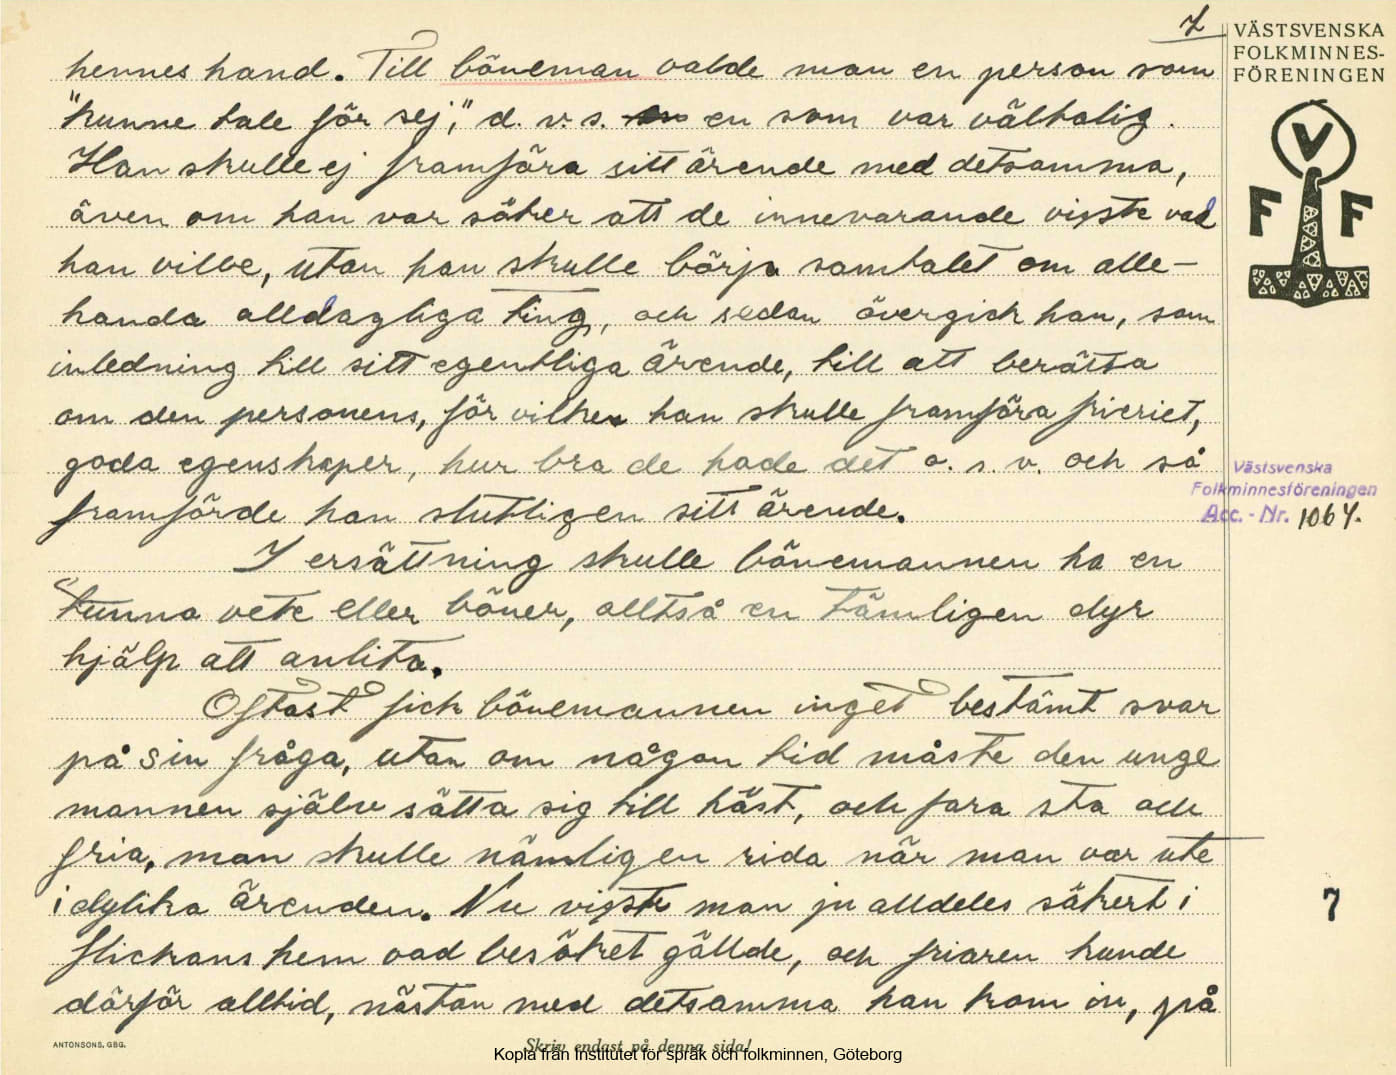 7
VÄSTSVENSKA
FOLKMINNES-
FÖRENINGEN
V
F F
hennes hand. Till böneman valde man en person som
"kunne tale för sej," d. v. s. en som var vältalig.
Han skulle ej framföra sitt ärende med detsamma,
även om han var säker att de innevarande visste vad
han ville, utan han skulle börja samtalet om alle-
handa alldagliga ting, och sedan övergick han, som
inledning till sitt egentliga ärende, till att berätta
om den personens, för vilken han skulle framföra frieriet,
goda egenskaper, hur bra de hade det o. s. v. och så
framförde han slutligen sitt ärende.
Västsvenska
Folkminnesföreningen
Acc. - Nr. 1064.
I ersättning skulle bönemannen ha en
tunna vete eller böner, alltså en tämligen dyr
hjälp att anlita.
Oftast fick bönemannen inget bestämt svar
på sin fråga, utan om någon tid måste den unge
mannen själv sätta sig till häst, och fara sta och
fria, man skulle nämligen rida när man var ute
i dylika ärenden. Nu visste man ju alldeles säkert i
flickans hem vad besöket gällde, och friaren kunde
därför alltid, nästan med detsamma han kom in, på
7
ANTONSONS, GBG.
Skriv endast på denna sida!
Kopia från Institutet för språk och folkminnen, Göteborg